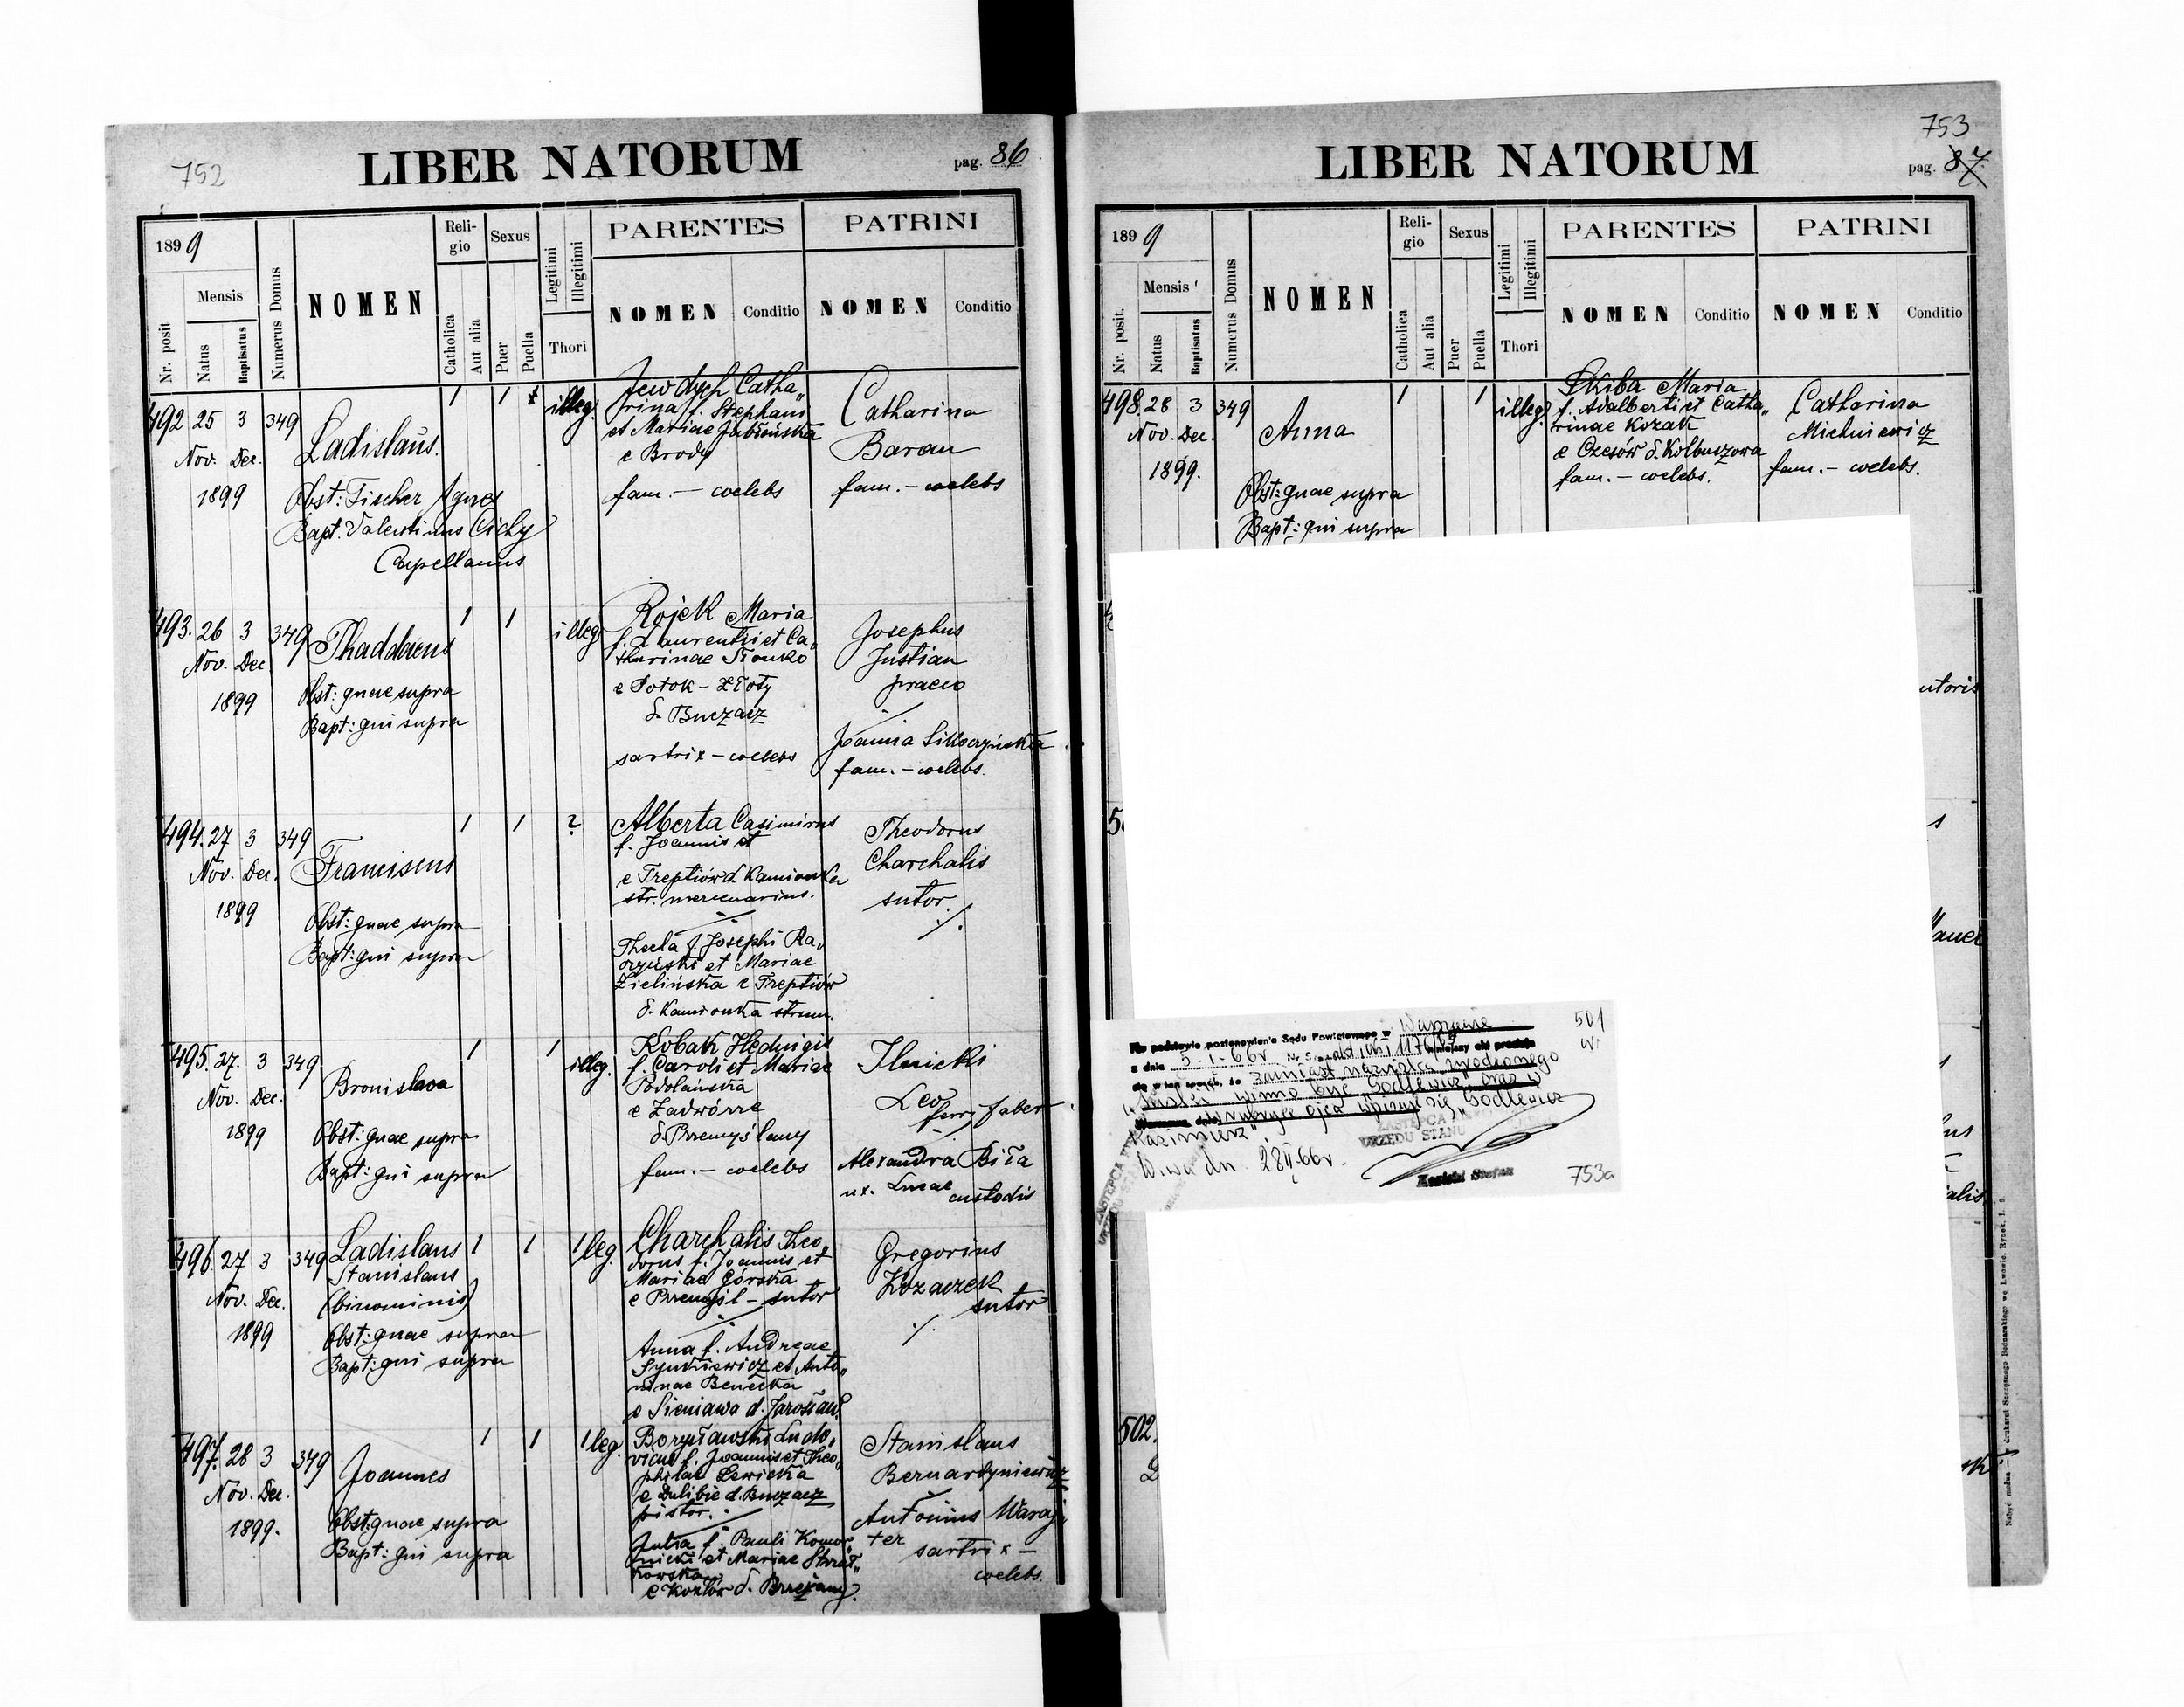 752
LIBER NATORUM
pag. 86
1899
Nr. posit
Mensis
Natus
Baptisatus
Numerus Domus
NOMEN
Religio
Catholica
Aut alia
Sexus
Puer
Puella
Legitimi
Illegitimi
Thori
PARENTES
NOMEN
Conditio
PATRINI
NOMEN
Conditio
492 25 3 349
Nov. Dec.
1899
Ladislaus.
Obst: Fischer Agnes
Bapt. Valentinus Cichy
Capellanus
1 1
illeg.
Catha„
rina f. Stephani
et Mariae Jabłońska
e Brody
fam. — coelebs
Catharina
Baran
fam. — coelebs
493. 26 3 349
Nov. Dec
1899
Thaddaeus
Obst: quae supra
Bapt: qui supra
1 1
illeg
Rojek Maria
f. Laurentii et Ca„
tharinae
e Potok - Złoty
d. Buczacz
sartrix - coelebs
Josephus
Justian
praeco
Joanna
fam. - coelebs.
494. 27 3 349
Nov. Dec.
1899
Franciscus
Obst: quae supra
Bapt: qui supra
1 1 ?
Alberta Casimirus
f. Joannis et
e Treptiów d. Kamionka
str. mercenarius.
Thecla f. Josephi Ra„
czyński et Mariae
Zielińska e Treptiów
d. Kamionka strum.
Theodorus
Charchalis
sutor
495. 27. 3 349
Nov. Dec.
1899
Bronislava
Obst: quae supra
Bapt: qui supra
1 1
illeg.
Kobak Hedvigis
f. Caroli et Mariae
Podolańska
e Zadwórze
d. Przemyślany
fam. - coelebs
Ilnicki
Leo
ferri faber
Alexandra Biła
ux. Lucae custodis
496. 27 3 349
Nov. Dec.
1899
Ladislaus
Stanislaus
(binominis)
Obst: quae supra
Bapt: qui supra
1 1 1 leg.
Charchalis Theo„
dorus f. Joannis et
Mariae Górska
e Przemyśl - sutor
Anna f. Andreae
Synkiewicz et Anto„
ninae
e Sieniawa d. Jarosław
Gregorius
Kozaczek
sutor
497. 28 3 349
Nov. Dec.
1899.
Joannes
Obst: quae supra
Bapt: qui supra
1 1 1 leg.
Borysławski Ludo„
vicus f. Joannis et Theo„
philae Lewicka
e Dulibie d. Buczacz
pistor.
Julia f. Pauli Komor„
nicki et Mariae
e Kozłów d. Brzeżany.
Stanislaus
Bernardyniewicz
Antonina
sartrix —
coelebs.
753
LIBER NATORUM
pag. 87
1899
Nr. posit.
Mensis
Natus
Baptisatus
Numerus Domus
NOMEN
Religio
Catholica
Aut alia
Sexus
Puer
Puella
Legitimi
Illegitimi
Thori
PARENTES
NOMEN
Conditio
PATRINI
NOMEN
Conditio
498. 28 3 349
Nov. Dec.
1899.
Anna
Obst: quae supra
Bapt: qui supra
1 1
illeg.
Skiba Maria
f. Adalberti et Catha„
rinae Kozak
e Czesów d. Kolbuszowa
fam. — coelebs.
Catharina
Michniewicz
fam. — coelebs.
Na podstawie postanowienia Sądu Powiatowego w Warszawie
501
z dnia 5-I-66r
że zamiast nazwiska
winno być „Godlewicz" oraz w
rubryce ojca wpisuje się „Godlewicz
Kazimierz".
ZASTĘPCA
URZĘDU STANU
W-wa dn. 28 II 66r.
753a
502.